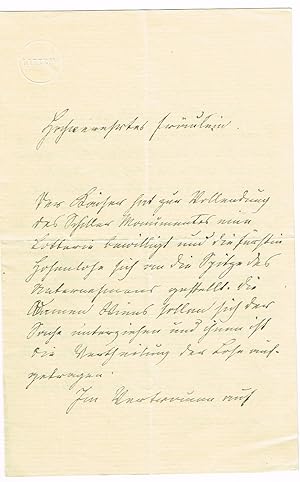 Hochverehrtes Fräulein.
Der Kaiser hat zur Vollendung
des Schiller Monumentes eine
Lotterie bewilligt und die Fürstin
Hohenlohe sich an die Spitze des
Unternehmens gestellt. Die
Damen Wiens sollen sich der
Sache unterziehen und ihnen ist
die Vertheilung der Lose auf-
getragen.
Im Vertrauen auf